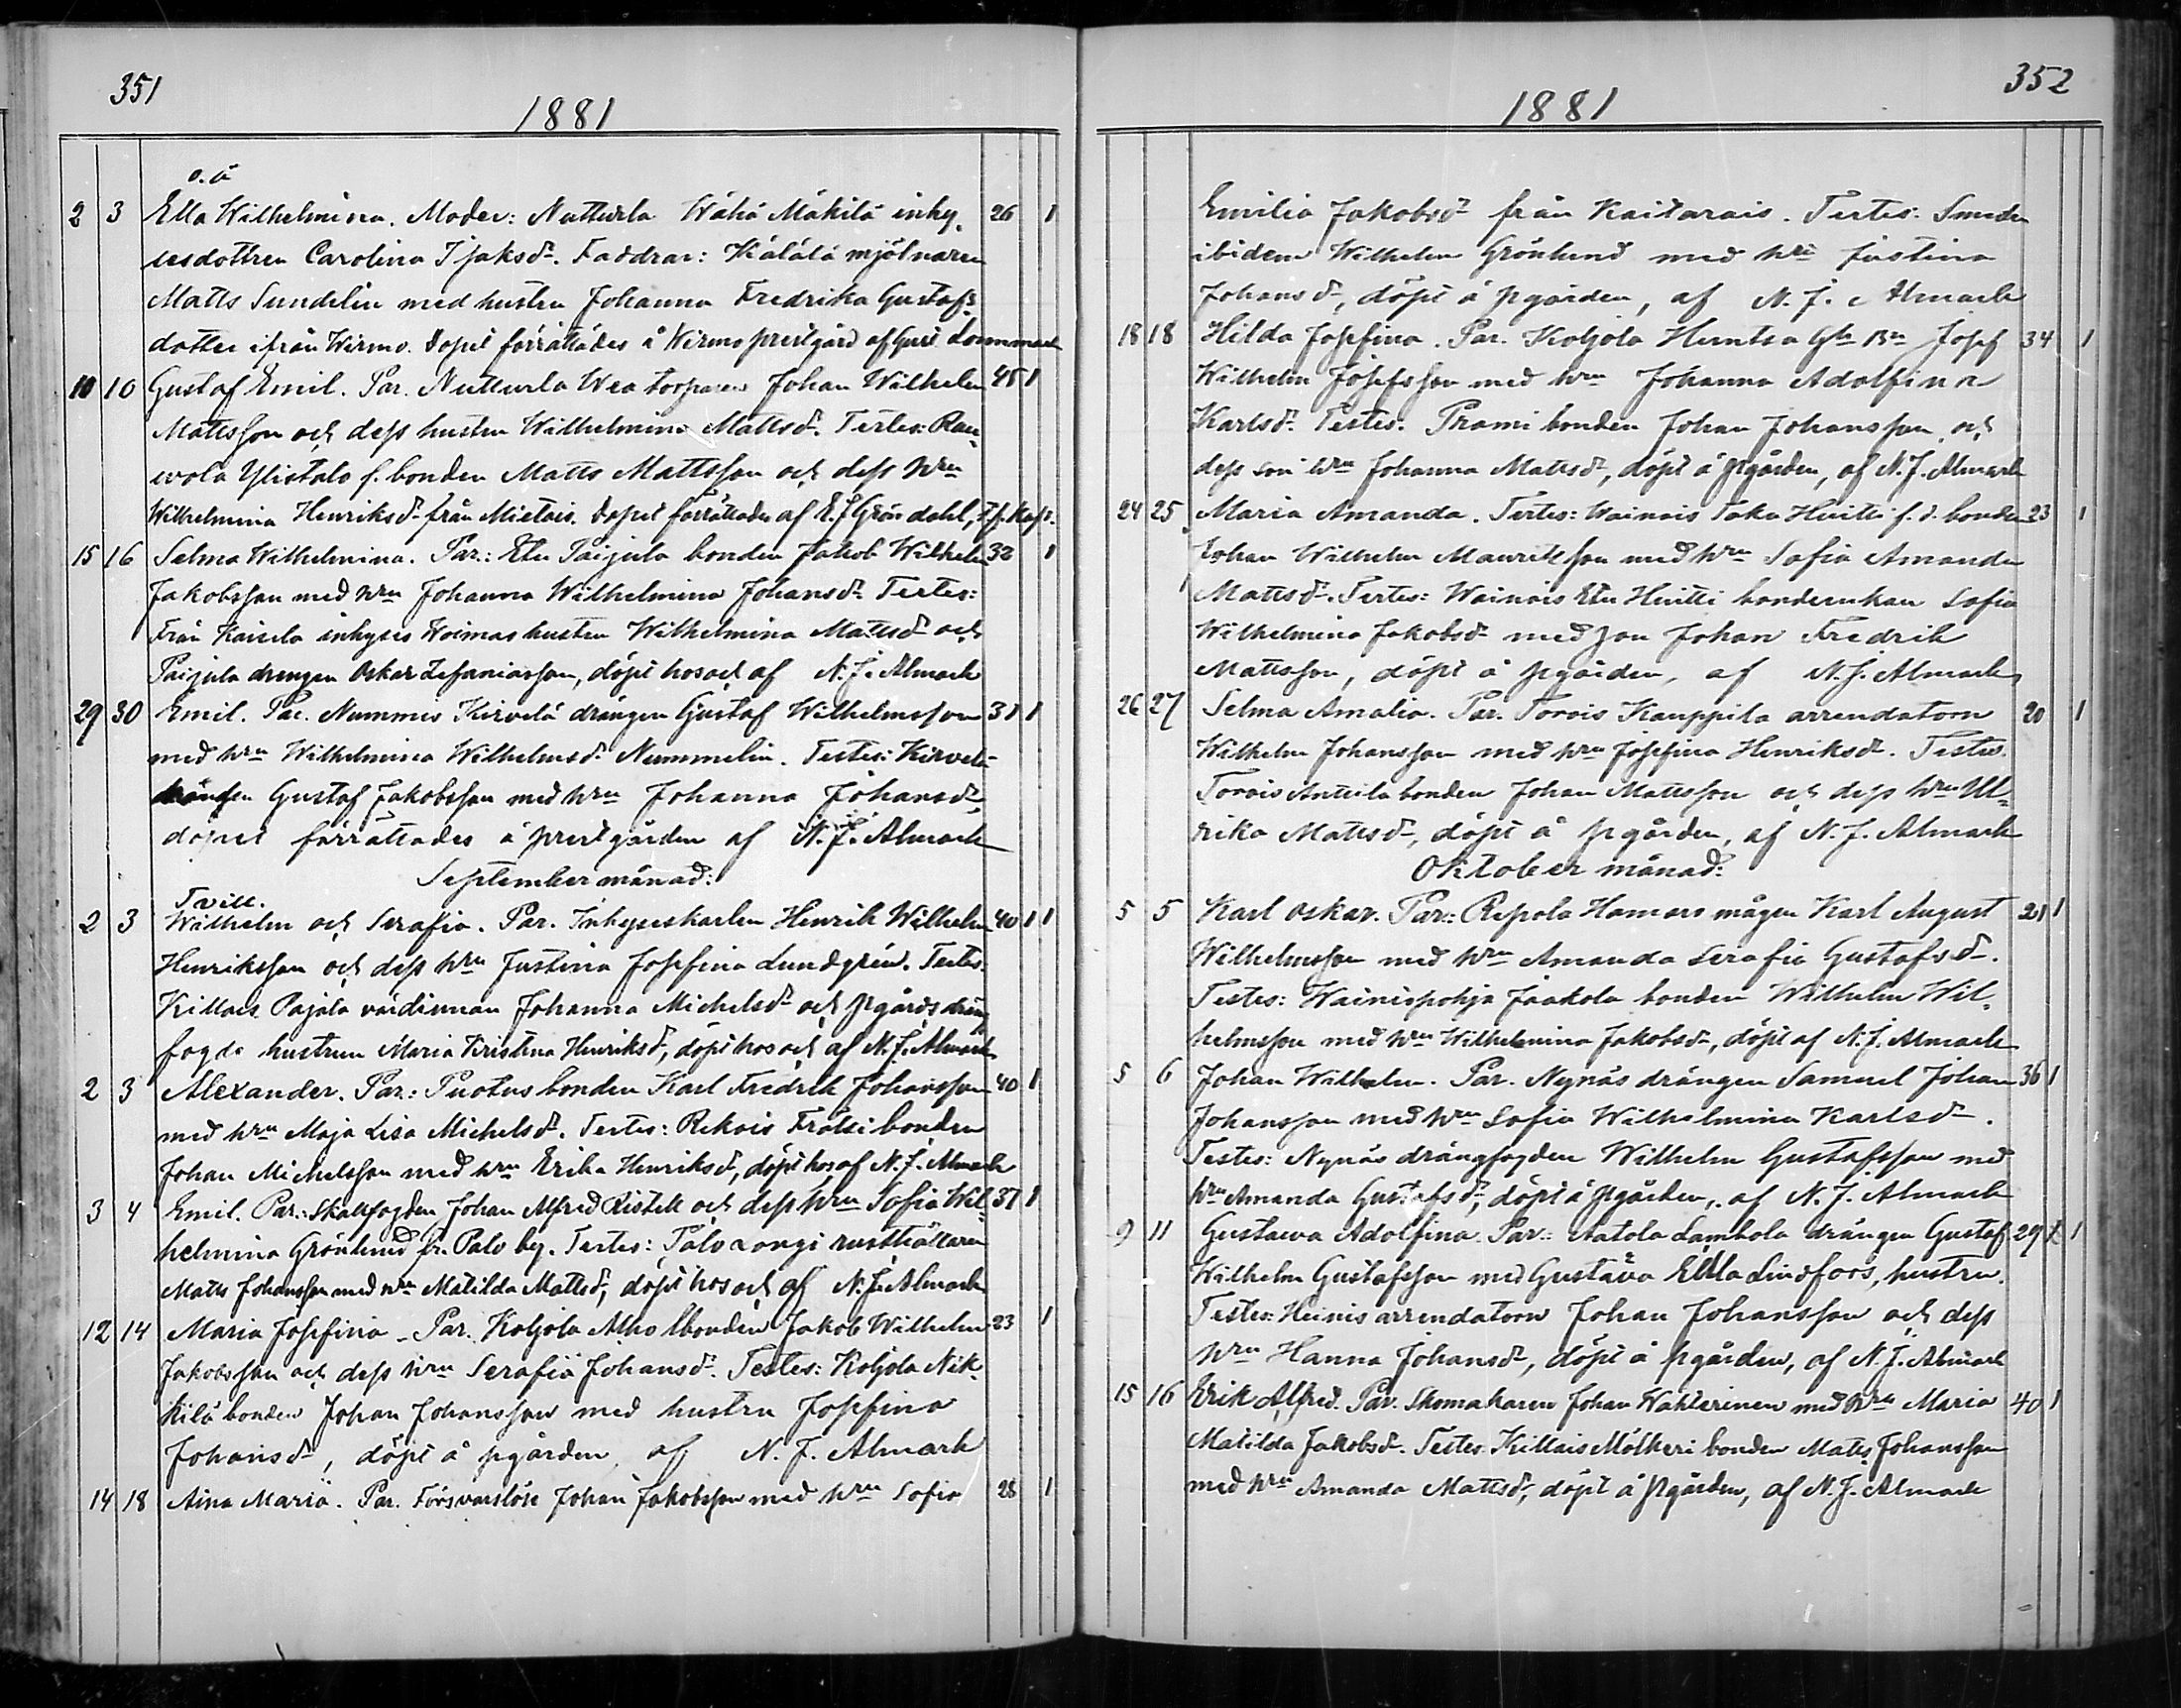 351
1881
o.ä
2 3 Ella Wilhelmina. Moder: Nutturla Wähä Mäkilä inhy- 26 1
sesdottren Carolina Isaksdr. Faddrar: Kälälä mjölnaren
Matts Sundelin med hustru Johanna Fredrika Gustafs
dotter ifrån Wirmo. Dopet förrättades å Wirmo prestgård af Gust Lönnmark
10 10 Gustaf Emil. Par. Nutturla Wea torparen Johan Wilhelm 45 1
Mattsson och dess hustru Wilhelmina Mattsdr. Testes: Rau-
vola Ylistalo f. bonden Matts Mattsson och dess hru
Wilhelmina Henriksdr från Mietois. Dopet förrättades af E. J. Gröndahl, tf. Kapl.
15 16 Selma Wilhelmina. Par.: Etu Paijula bonden Jakob Wilhelm 32 1
Jakobsson med hru Johanna Wilhelmina Johansdr. Testes:
Från Kaisela inhyses Woimas hustru Wilhelmina Mattsdr och
Paijula drengen Oskar Zefaniasson, döpt hos och af N. J. Almark
29 30 Emil. Par. Nummis Kirvelä drängen Gustaf Wilhelmsson 31 1
med hru Wilhelmina Wilhelmsdr Nummelin. Testes: Kirvelä
Gustaf Jakobsson med hru Johanna Johansdr
dopet förrättades å prestgården af N. J. Almark
September månad:
Tvill.
2 3 Wilhelm och Serafia. Par. Inhyseskarlen Henrik Wilhelm 40 1 1
Henriksson och dess hru Justina Josefina Lundgrén. Testes.
Killais Pajala värdinnan Johanna Michelsdr och pgårds dräng
fogde hustrun Maria Kristina Henriksdr, döpt hos och af N. J. Almark
2 3 Alexander. Par.: Puotus bonden Karl Fredrik Johansson 40 1
med hru Maja Lisa Michelsdr. Testes: Rekois Frälsi bonden
Johan Michelsson med hru Erika Henriksdr, döpt hos af N. J. Almark
3 4 Emil. Par.: Skallfogden Johan Alfred Ristell och dess hru Sofia Wil- 37 1
helmina Grönlund fr. Palo by. Testes: Palo Longi rusthållaren
Matts Johansson med hru Matilda Mattsdr, döpt hos och af N. J. Almark
12 14 Maria Josefina. Par. Koljola Alho bonden Jakob Wilhelm 23 1
Jakobsson och dess hru Serafia Johansdr. Testes: Koljola Nik-
kilä bonden Johan Johansson med hustru Josefina
Johansdr, döpt å pgården, af N. J. Almark
14 18 Aina Maria. Par. Försvarslöse Johan Jakobsson med hru Sofia 28 1
352
1881
Emilia Jakobsdr från Kaitarais. Testes. Smeden
ibidem Wilhelm Grönlund med hru Justina
Johansdr, döpt å pgården, af N. J. Almark
18 18 Hilda Josefina. Par. Koljola Huntsa Gla Bn Josef 34 1
Wilhelm Josefsson med hru Johanna Adolfina
Karlsdr. Testes. Prami bonden Johan Johansson och
dess son hru Johanna Mattsdr, döpt å pgården, af N. J. Almark
24 25 Maria Amanda. Testes: Wainois Taka Huitti f. d. bonden 23 1
Johan Wilhelm Mauritsson med hru Sofia Amanda
Mattsdr. Testes: Wainois Etu Huitti bondeenkan Sofia
Wilhelmina Jakobsdr med son Johan Fredrik
Mattsson, döpt å pgården, af N. J. Almark
26 27 Selma Amalia. Par. Torois Kauppila arrendatorn 20 1
Wilhelm Johansson med hru Josefina Henriksdr. Testes.
Torois Anttila bonden Johan Mattsson och dess hru Ul-
rika Mattsdr, döpt å pgården, af N. J. Almark
Oktober månad:
5 5 Karl Oskar. Par.: Repola Hamars mågen Karl August 21 1
Wilhelmsson med hru Amanda Serafia Gustafsdr.
Testes: Wainispohja Jaakola bonden Wilhelm Wil-
helmsson med hru Wilhelmina Jakobsdr, döpt af N. J. Almark
5 6 Johan Wilhelm. Par. Nynäs drängen Samuel Johan 36 1
Johansson med hru Sofia Wilhelmina Karlsdr.
Testes: Nynäs drängfogden Wilhelm Gustafsson med
hru Amanda Gustafsdr, döpt å pgården, af N. J. Almark
9 11 Gustawa Adolfina. Par.: Aatola Lambola drängen Gustaf 29 1
Wilhelm Gustafsson med Gustava Ella Lindfors, hustru.
Testes: Heinis arrendatorn Johan Johansson och dess
hru Hanna Johansdr, döpt å pgården, af N. J. Almark
15 16 Erik Alfred. Par. Skomakaren Johan Wahterinen med hru Maria 40 1
Matilda Jakobsdr. Testes. Killais Mölkeri bonden Matts Johansson
med hru Amanda Mattsdr, döpt å pgården, af N. J. Almark